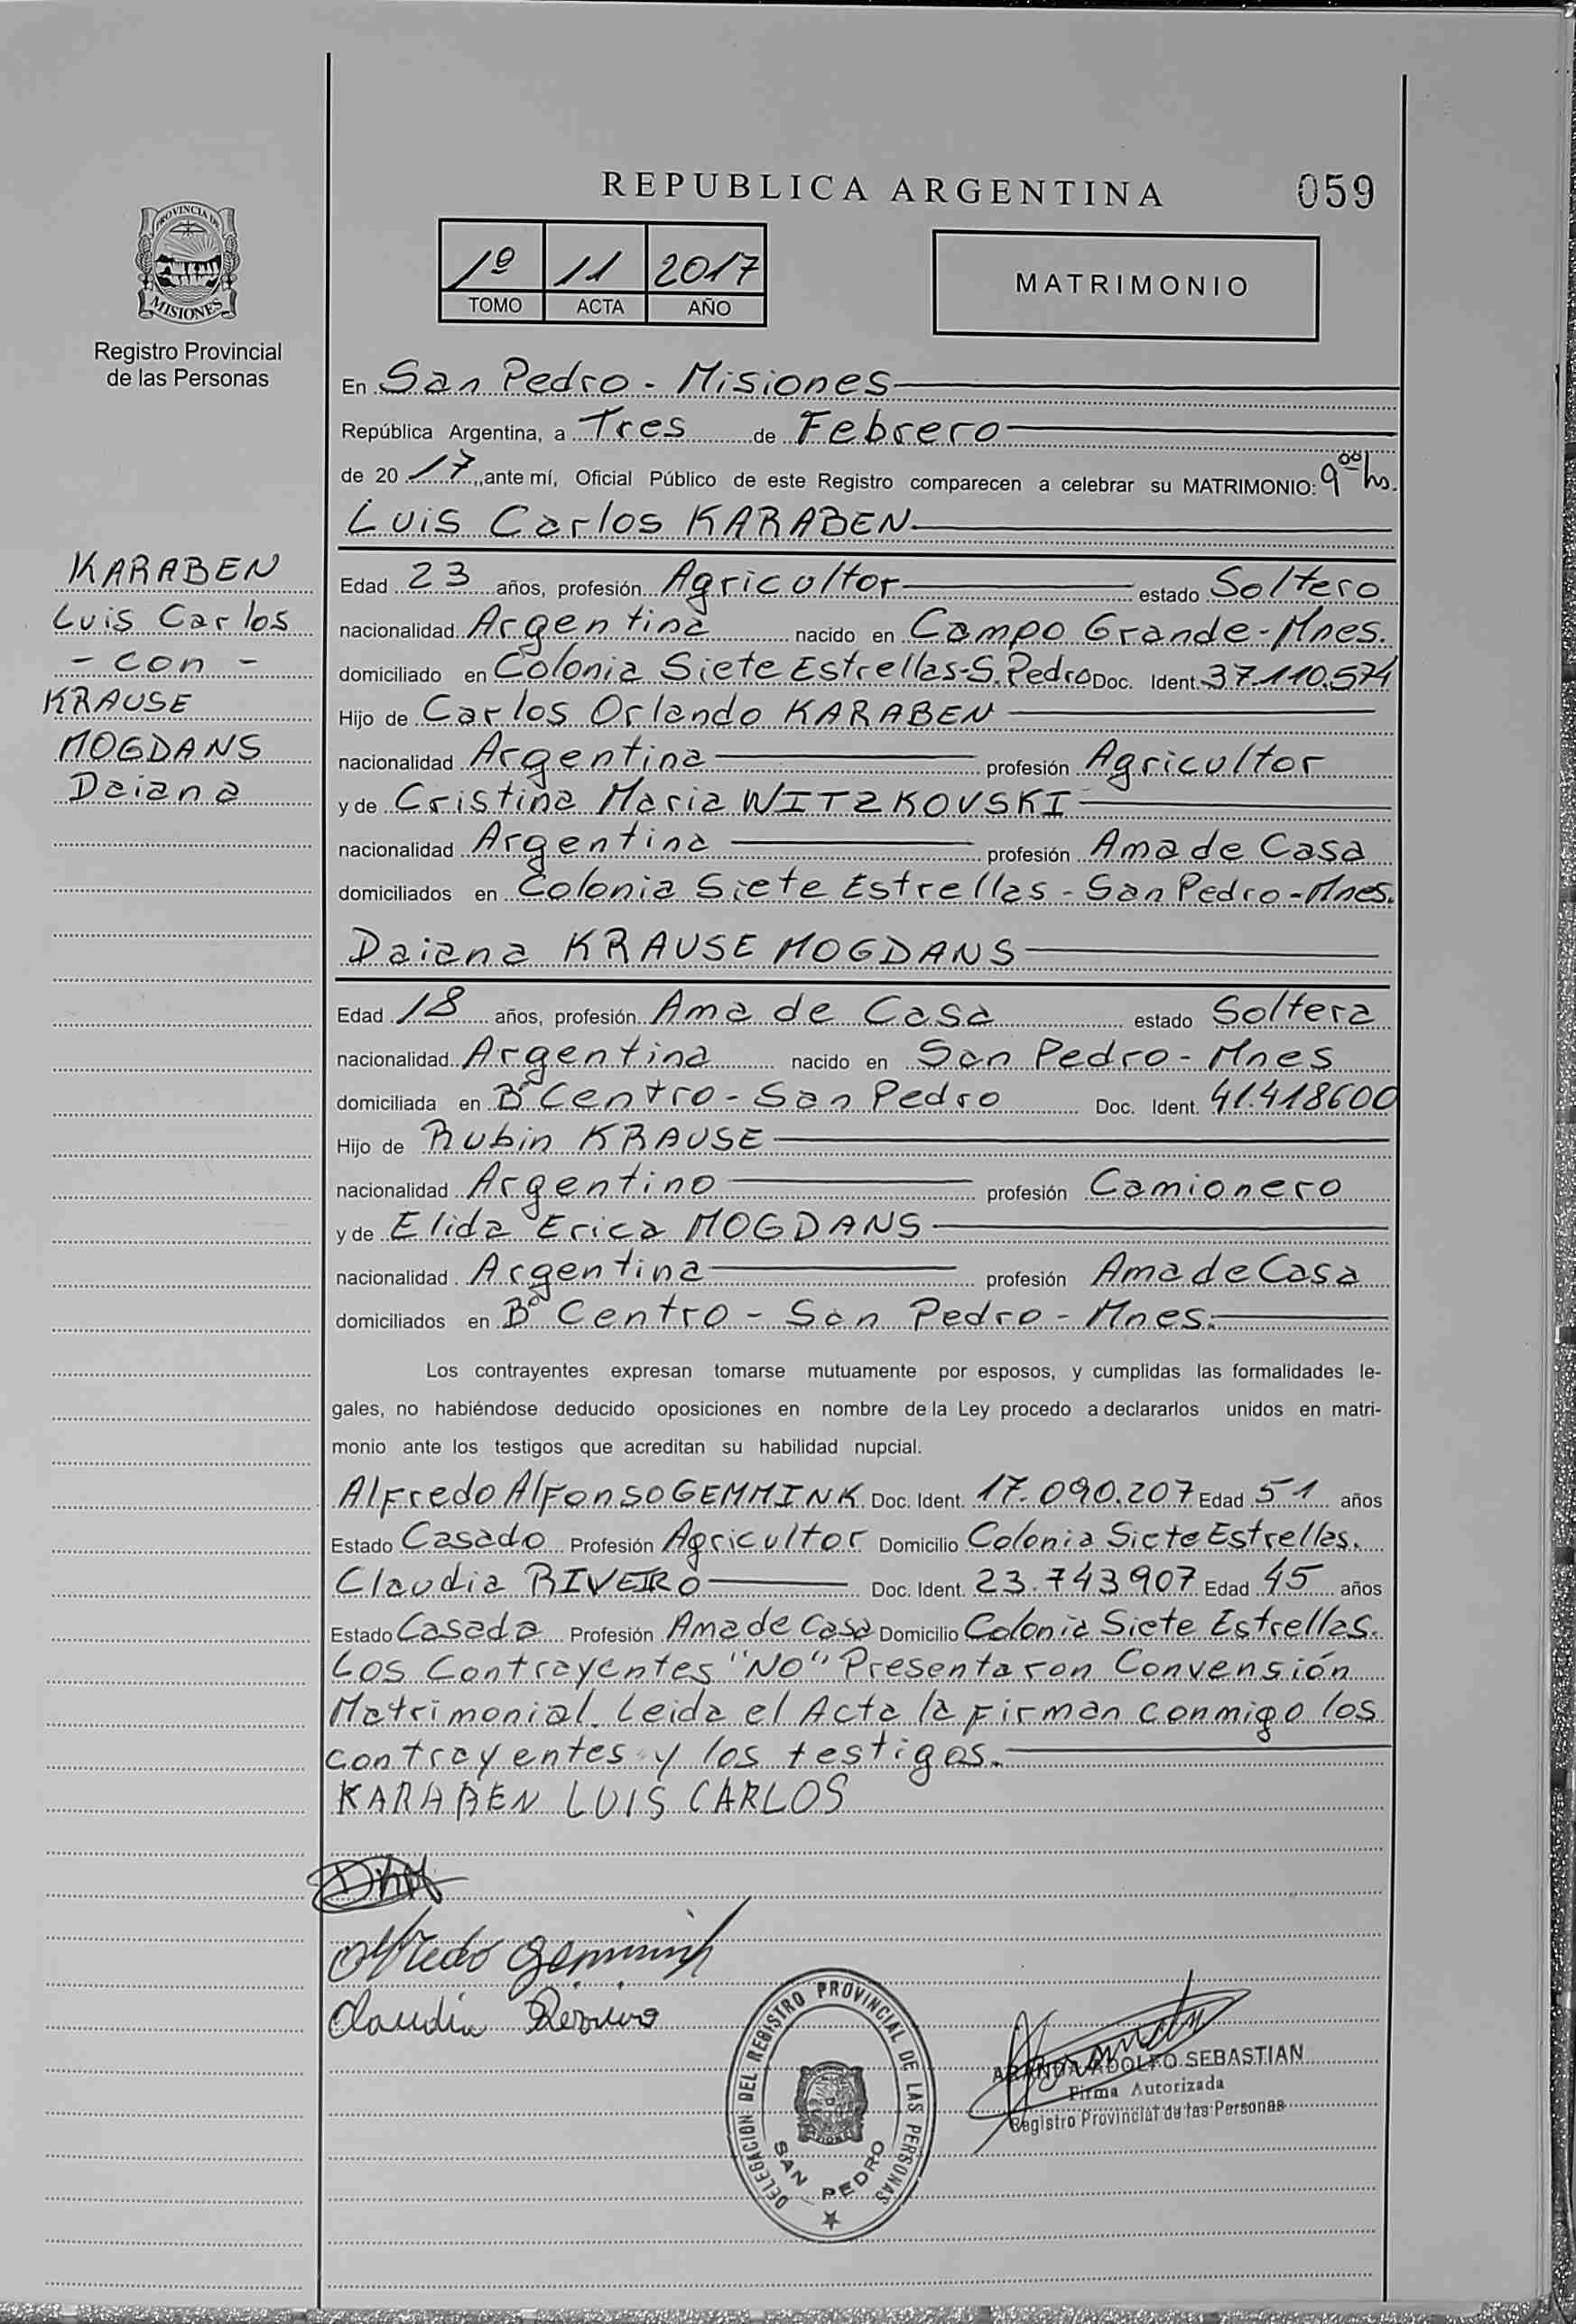 REPUBLICA ARGENTINA
059
PROVINCIA DE
MISIONES
Registro Provincial
de las Personas
1º 11 2017
TOMO ACTA AÑO
MATRIMONIO
En San Pedro - Misiones
República Argentina, a Tres de Febrero
de 20 17, ante mí, Oficial Público de este Registro comparecen a celebrar su MATRIMONIO: 9 00 hs.
Luis Carlos KARABEN
KARABEN
Luis Carlos
- con -
KRAUSE
MOGDANS
Daiana
Edad 23 años, profesión Agricultor estado Soltero
nacionalidad Argentina nacido en Campo Grande - Mnes.
domiciliado en Colonia Siete Estrellas - S. Pedro Doc. Ident. 37.110.574
Hijo de Carlos Orlando KARABEN
nacionalidad Argentina profesión Agricultor
y de Cristina Maria WITZKOVSKI
nacionalidad Argentina profesión Ama de Casa
domiciliados en Colonia Siete Estrellas - San Pedro - Mnes.
Daiana KRAUSE MOGDANS
Edad 18 años, profesión Ama de Casa estado Soltera
nacionalidad Argentina nacido en San Pedro - Mnes
domiciliada en Bº Centro - San Pedro Doc. Ident. 41.418600
Hijo de Rubin KRAUSE
nacionalidad Argentino profesión Camionero
y de Elida Erica MOGDANS
nacionalidad Argentina profesión Ama de Casa
domiciliados en Bº Centro - San Pedro - Mnes.
Los contrayentes expresan tomarse mutuamente por esposos, y cumplidas las formalidades le-
gales, no habiéndose deducido oposiciones en nombre de la Ley procedo a declararlos unidos en matri-
monio ante los testigos que acreditan su habilidad nupcial.
Alfredo Alfonso GEMMINK Doc. Ident. 17.090.207 Edad 51 años
Estado Casado Profesión Agricultor Domicilio Colonia Siete Estrellas.
Claudia RIVEIRO Doc. Ident. 23.743907 Edad 45 años
Estado Casada Profesión Ama de Casa Domicilio Colonia Siete Estrellas.
Los Contrayentes "NO" Presentaron Convensión
Matrimonial. Leida el Acta la firman conmigo los
contrayentes y los testigos.
KARABEN LUIS CARLOS
Alfredo Gemmink
Claudia
DELEGACION DEL REGISTRO PROVINCIAL DE LAS PERSONAS
SAN PEDRO
ARANDA ADOLFO SEBASTIAN
Firma Autorizada
Registro Provincial de las Personas